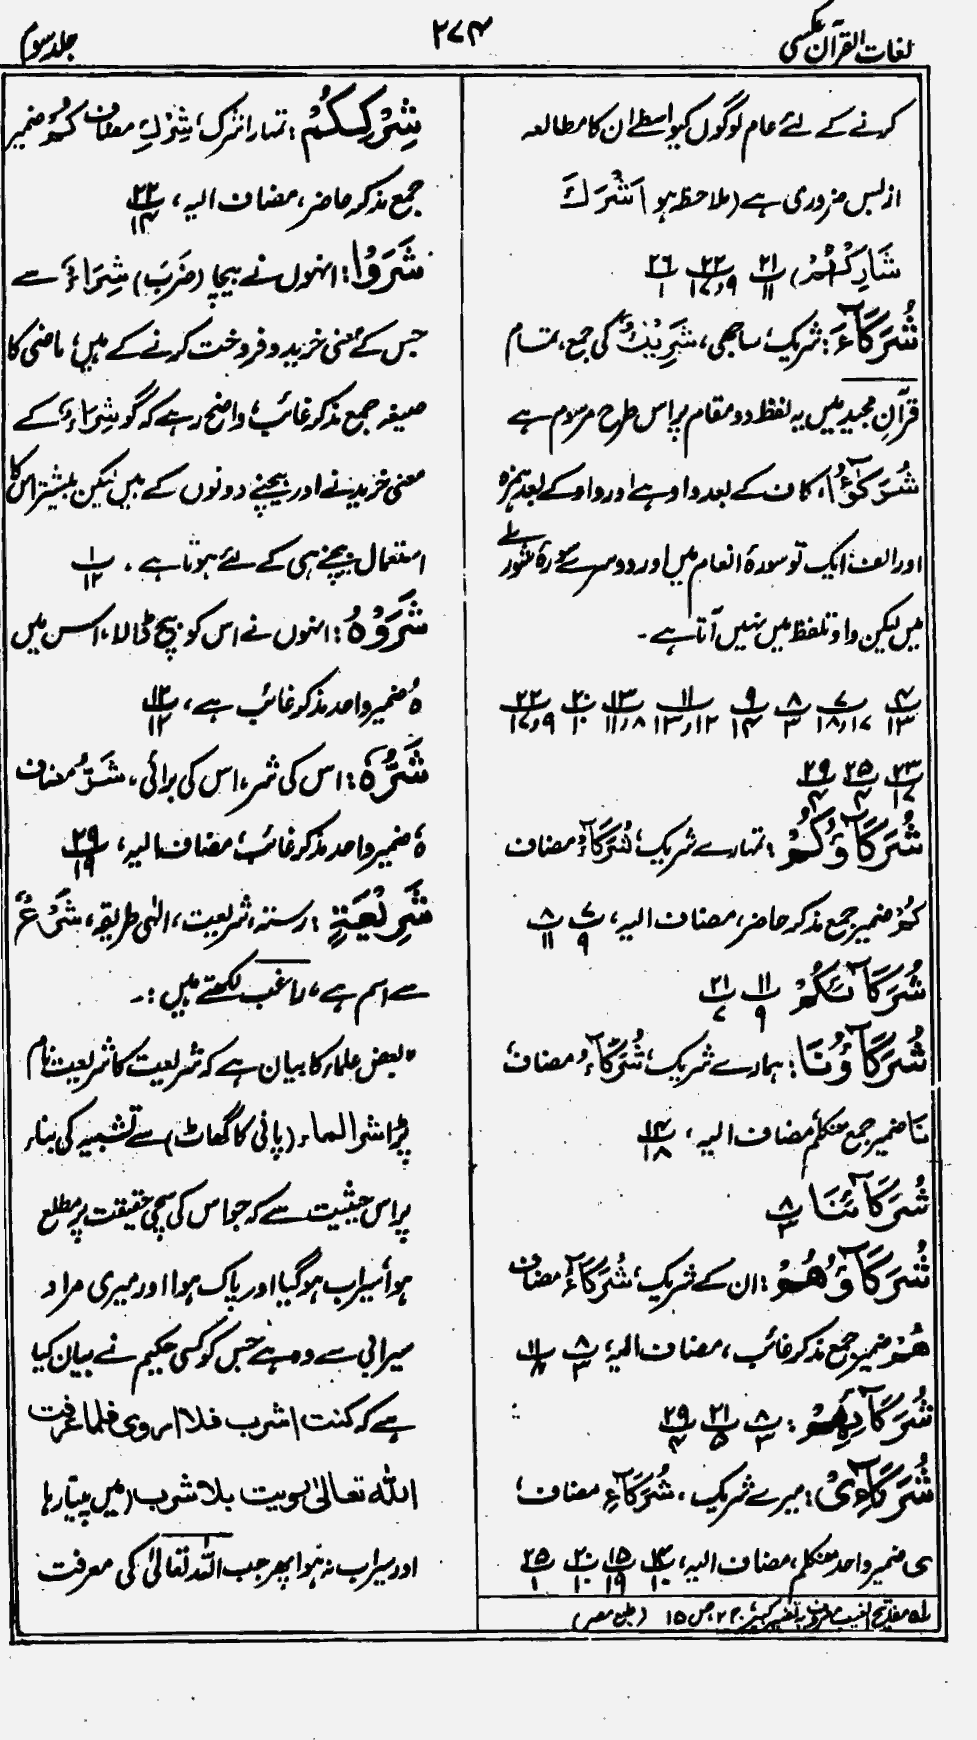 لغات القرآن عکسی
۲۷۴
جلد سوم
کرنے کے لئے عام لوگوں کیواسطے ان کا مطالعہ
ازبس ضروری ہے (ملاحظہ ہو اَشْرَكَ
شَارِكْهُمْ) ۲۱/۱۱ ۲۲/۱۷٫۹ ۲۶/۱
شُرَكَآءَ: شریک، ساجھی، شَرِيْكٌ کی جمع، تمام
قرآنِ مجید میں یہ لفظ دو مقام پر اس طرح مرسوم ہے
شُرَكٰٓؤُا، کاف کے بعد واو ہے اور واو کے بعد ہمزہ
اور الف، ایک تو سورۂ انعام میں اور دوسرے سورۂ شوریٰ
میں لیکن واو تلفظ میں نہیں آتا ہے۔
۴/۱۳ ۷/۱۸٫۱۷ ۸/۳ ۹/۱۴ ۱۱/۱۳٫۱۲ ۱۳/۱۱٫۸ ۲۰/۱۰ ۲۲/۱۷٫۹
۲۳/۱۷ ۲۵/۴ ۲۹/۴
شُرَكَآؤُكُمْ: تمہارے شریک، شُرَكَآءُ مضاف
كُمْ ضمیر جمع مذکر حاضر، مضاف الیہ، ۷/۹ ۸/۱۱
شُرَكَآئِكُمْ ۱۱/۹ ۲۱/۷
شُرَكَآؤُنَا: ہمارے شریک، شُرَكَآءُ مضاف،
نَا ضمیر جمع متکلم مضاف الیہ، ۱۴/۱۸
شُرَكَآئِنَا ۸/۳
شُرَكَآؤُهُمْ: ان کے شریک، شُرَكَآءُ مضاف
هُمْ ضمیر جمع مذکر غائب، مضاف الیہ، ۸/۳ ۱۱/۸
شُرَكَآئِهِمْ: ۸/۳ ۲۱/۵ ۲۹/۴
شُرَكَآءِىْ: میرے شریک، شُرَكَآءِ مضاف،
ی ضمیر واحد متکلم، مضاف الیہ، ۱۴/۱۰ ۱۵/۱۹ ۲۰/۱۰ ۲۵/۱
لہ مفاتیح الغیب معروف بہ تفسیر کبیر، ج ۲ ص ۱۵ (طبع مصر)
شِرْكِكُمْ: تمہارا شرک، شِرْكِ مضاف كُمْ ضمیر
جمع مذکر حاضر، مضاف الیہ، ۲۲/۱۴
شَرَوْا: انہوں نے بیچا (ضَرَبَ) شِرَاءٌ سے
جس کے معنی خرید و فروخت کرنے کے ہیں، ماضی کا
صیغہ جمع مذکر غائب، واضح رہے کہ گو شِرَاءٌ کے
معنی خریدنے اور بیچنے دونوں کے ہیں لیکن بیشتر اس کا
استعمال بیچنے ہی کے لئے ہوتا ہے۔ ۱/۱۲
شَرَوْهُ: انہوں نے اس کو بیچ ڈالا، اس میں
هُ ضمیر واحد مذکر غائب ہے، ۱۲/۱۲
شَرُّهٗ: اس کی شر، اس کی برائی، شَرُّ مضاف
هٗ ضمیر واحد مذکر غائب، مضاف الیہ، ۲۹/۱۹
شَرِيْعَةٍ: رستہ، شریعت، الٰہی طریقہ، شَرْعٌ
سے اسم ہے، راغب لکھتے ہیں:۔
"بعض علماء کا بیان ہے کہ شریعت کا شریعت نام
پڑا شرالماء (پانی کا گھاٹ) سے تشبیہ کی بناء
پر اس حیثیت سے کہ جو اس کی سچی حقیقت پر مطلع
ہوا سیراب ہو گیا اور پاک ہوا اور میری مراد
سیرابی سے وہ ہے جس کو کسی حکیم نے بیان کیا
ہے کہ کنت اشرب فلا اروی فلما عرفت
اللّٰہ تعالیٰ رویت بلا شرب (میں پیتا رہا
اور سیراب نہ ہوا پھر جب اللّٰہ تعالیٰ کی معرفت